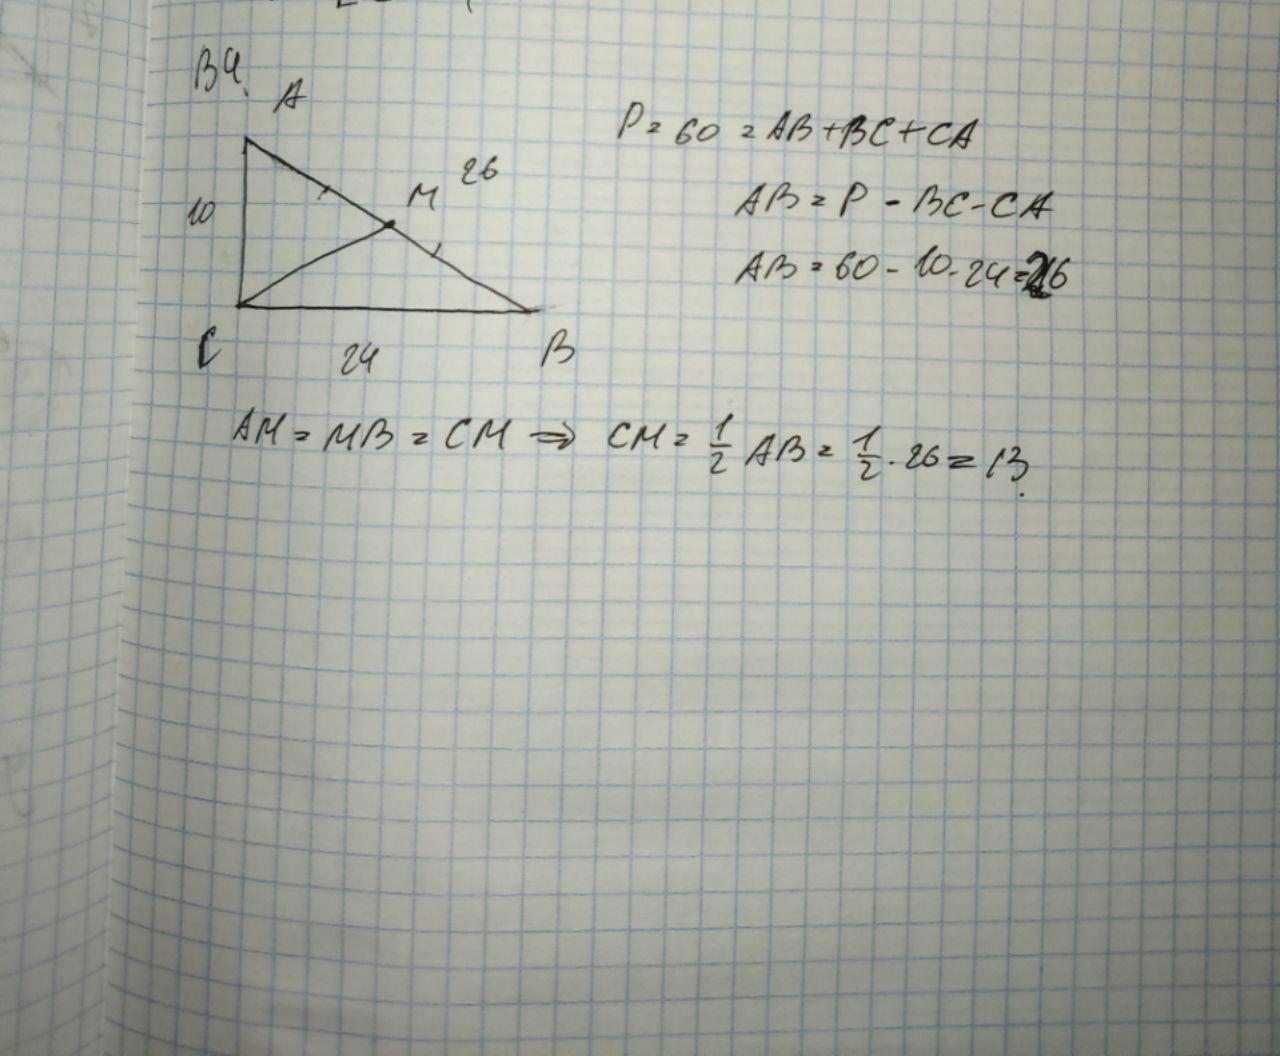 В4.
A
P = 60 = AB+BC+CA
26
M
10
AB = P - BC-CA
AB = 60 - 10 - 24 = 26
C
24
B
AM = MB = CM ⇒ CM = 1/2 AB = 1/2 · 26 = 13.